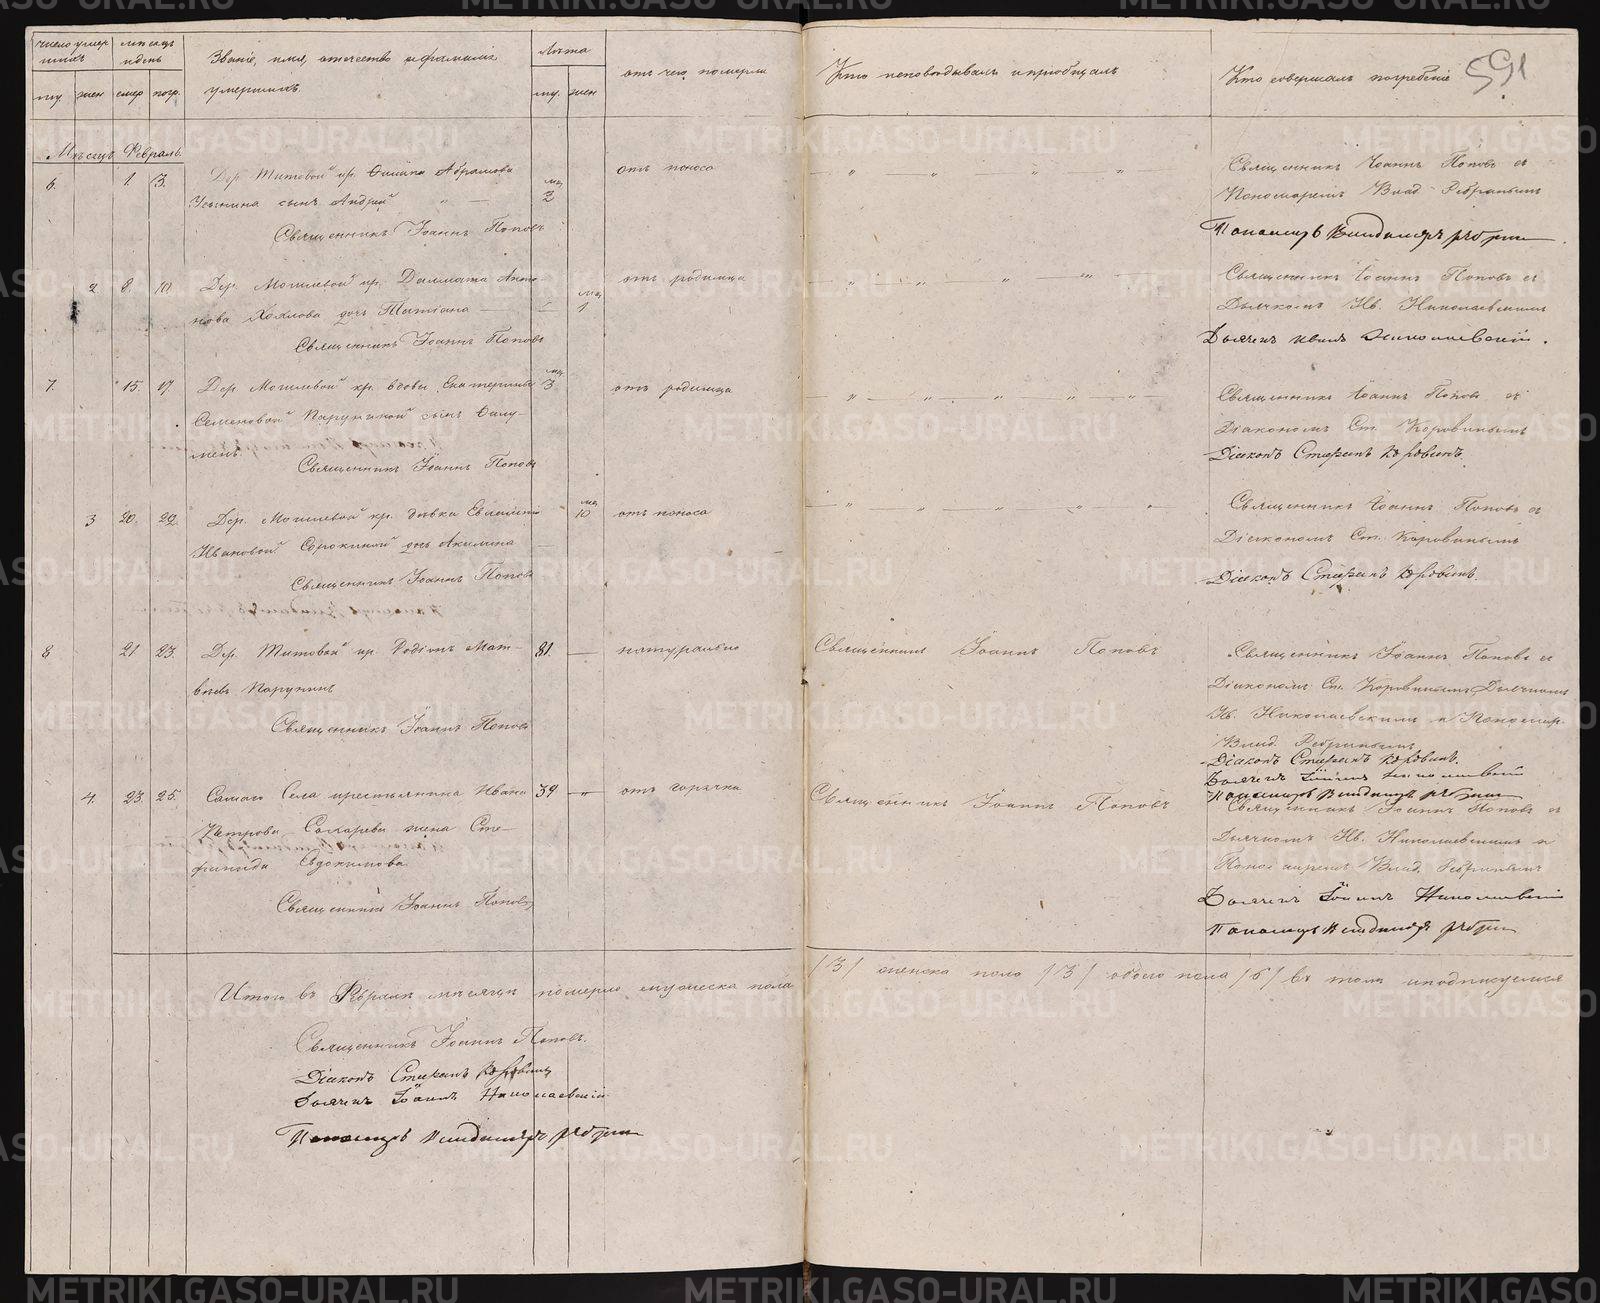 число умер
ших
месяць
и день
Званіе, имя, отчество и фамилія
умершихъ.
Лѣта
отъ чего померли
Кто исповѣдывалъ и пріобщалъ
Кто совершалъ погребеніе
591
му. жен. смер. погр.
му. жен.
Мѣсяцъ Февраль.
6. 1. 3. Дер. Титовой кр. Филипа Абрамова
сынъ Андрей
мц. 2
отъ поноса
Священникъ Іоаннъ Поповъ съ
Пономаремъ Влад. Ребринымъ
Священникъ Іоаннъ Поповъ
Пономарь Владимиръ Ребринъ
2 8. 10. Дер. Могилевой кр. Далмата Анти-
пова Хохлова дочь Татіана
мц. 1
отъ родимца
Священникъ Іоаннъ Поповъ съ
Дьячкомъ Ив. Николаевскимъ
Священникъ Іоаннъ Поповъ
Дьячекъ Иванъ Николаевскій.
7. 15. 17. Дер. Могилевой кр. вдовы Екатерины
Семеновой Паруниной сынъ Филу-
менъ
мц. 3
отъ родимца
Священникъ Іоаннъ Поповъ съ
Діакономъ Ст. Коровинымъ
Священникъ Іоаннъ Поповъ
Діаконъ Стефанъ Коровинъ.
3 20. 22. Дер. Могилевой кр. дѣвки
Ивановой Сорокиной дочь Акилина
мц. 10
отъ поноса
Священникъ Іоаннъ Поповъ съ
Діакономъ Ст. Коровинымъ
Священникъ Іоаннъ Поповъ
Діаконъ Стефанъ Коровинъ.
8 21. 23. Дер. Титовой кр. Родіонъ Мат-
вѣевъ Парунинъ
81.
натурально
Священникъ Іоаннъ Поповъ
Священникъ Іоаннъ Поповъ съ
Діакономъ Ст. Коровинымъ, Дьячкомъ
Ив. Николаевскимъ и Пономар.
Влад. Ребринымъ
Священникъ Іоаннъ Поповъ
Діаконъ Стефанъ Коровинъ.
Дьячекъ Іоаннъ Николаевскій
Пономарь Владимиръ Ребринъ
4. 23. 25. Самаго Села крестьянина Ивана
Петрова Сахарова жена Сте-
фанида Евдокимова
39
отъ горячки
Священникъ Іоаннъ Поповъ
Священникъ Іоаннъ Поповъ съ
Дьячкомъ Ив. Николаевскимъ и
Пономаремъ Влад. Ребринымъ
Священникъ Іоаннъ Поповъ
Дьячекъ Іоаннъ Николаевскій
Пономарь Владимиръ Ребринъ
Итого въ Февралѣ мѣсяцѣ померло мужеска пола /3/ женска пола /3/ обоего пола /6/ въ томъ и подписуемся
Священникъ Іоаннъ Поповъ.
Діаконъ Стефанъ Коровинъ
Дьячекъ Іоаннъ Николаевскій
Пономарь Владимиръ Ребринъ
METRIKI.GASO-URAL.RU